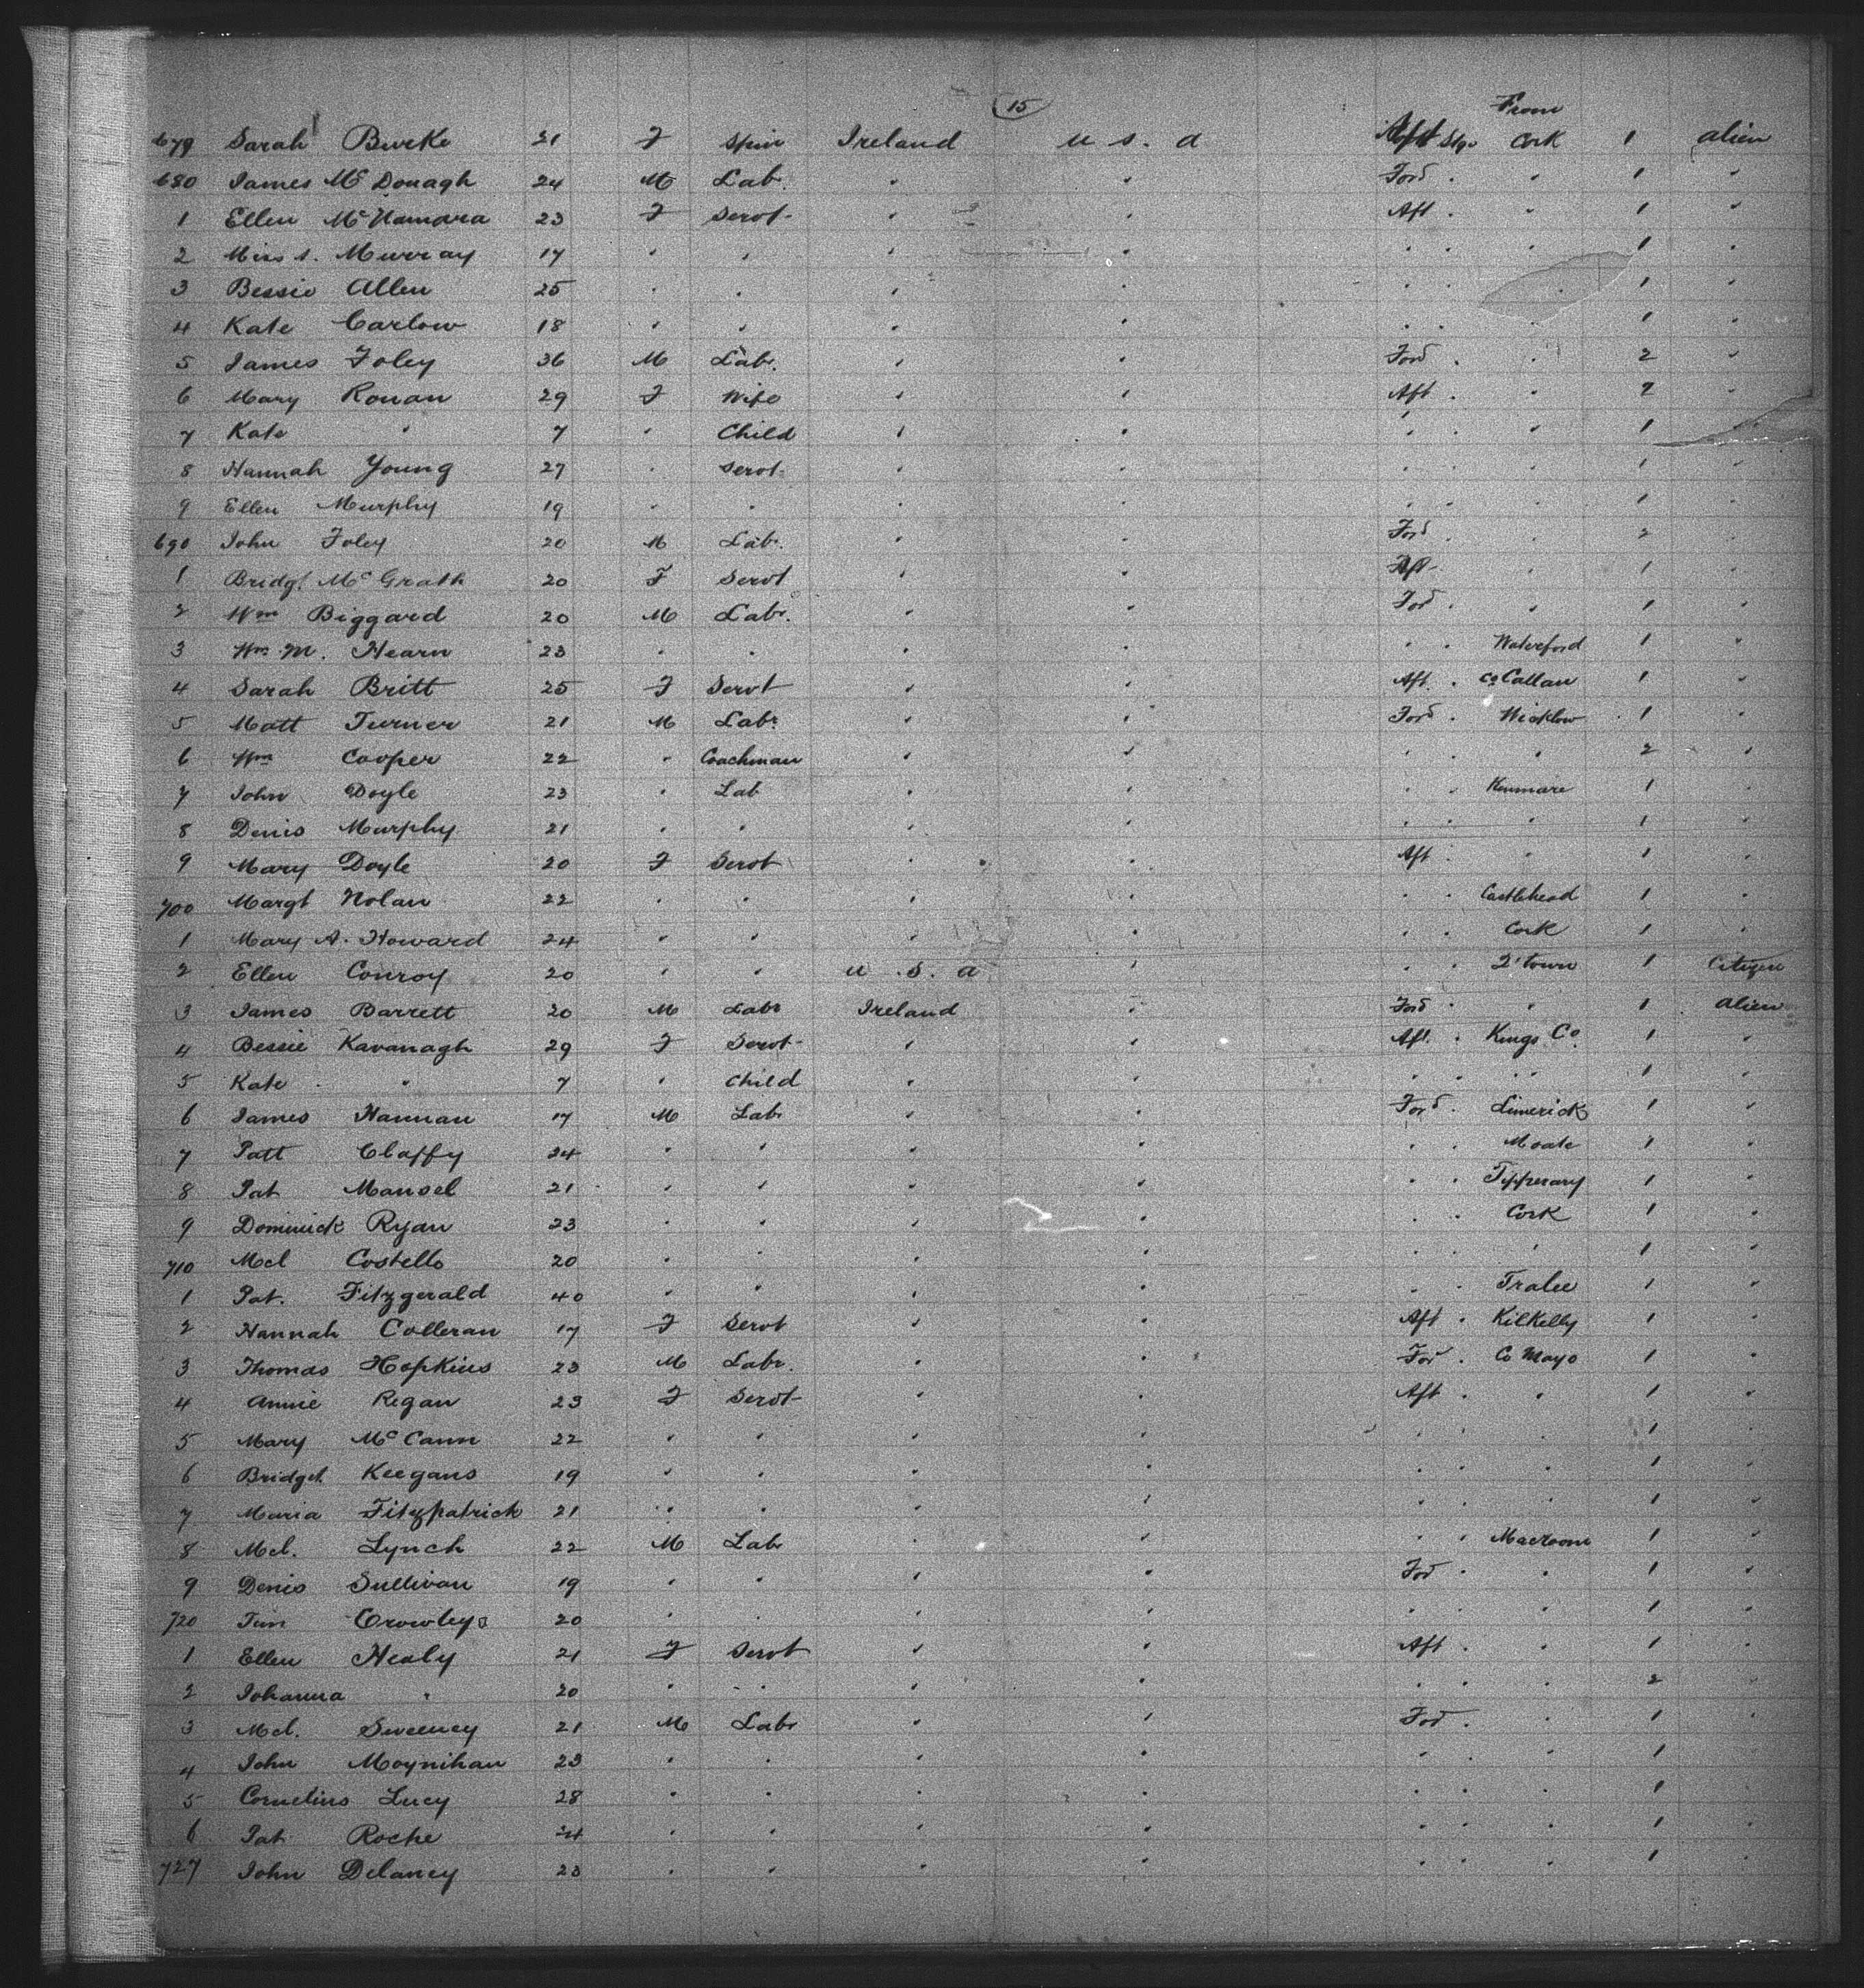 15
From
679 Sarah Burke 21 F Spin Ireland U S. A Aft Stge Cork 1 Alien
680 James McDonagh 24 M Lab. " " Ford " " 1 "
1 Ellen McNamara 23 F Servt " " Aft " " 1 "
2 Miss A. Murray 17 " " " " " " " 1 "
3 Bessie Allen 25 " " " " " " " 1 "
4 Kate Carlow 18 " " " " " " " 1 "
5 James Foley 36 M Lab. " " Ford " " 2 "
6 Mary Ronan 29 F Wife " " Aft " " 2 "
7 Kate " 7 " Child " " " " " 1 "
8 Hannah Young 27 " Servt " " " " " 1 "
9 Ellen Murphy 19 " " " " " " " 1 "
690 John Foley 20 M Lab. " " Ford " " 2 "
1 Bridgt. McGrath 20 F Servt " " Aft " " 1 "
2 Wm Biggard 20 M Labr. " " Ford " " 1 "
3 Wm M. Hearn 23 " " " " " " Waterford 1 "
4 Sarah Britt 25 F Servt " " Aft. " Co Callan 1 "
5 Matt Turner 21 M Labr " " Ford " Wicklow 1 "
6 Wm Cooper 22 " Coachman " " " " " 2 "
7 John Doyle 23 " Lab " " " " Kenmare 1 "
8 Denis Murphy 21 " " " " " " " 1 "
9 Mary Doyle 20 F Servt " " Aft " " 1 "
700 Margt Nolan 22 " " " " " " Castlehead 1 "
1 Mary A. Howard 24 " " " " " " Cork 1 "
2 Ellen Conroy 20 " " U . S. A " " " Q'town 1 Citizen
3 James Barrett 20 M Labr Ireland " Ford " " 1 Alien
4 Bessie Kavanagh 29 F Servt " " Aft. " Kings Co. 1 "
5 Kate " 7 " Child " " " " " 1 "
6 James Hannan 17 M Labr " " Ford " Limerick 1 "
7 Patt Claffy 24 " " " " " " Moate 1 "
8 Pat Mansel 21 " " " " " " Tipperary 1 "
9 Dominick Ryan 23 " " " " " " Cork 1 "
710 Mcl Costello 20 " " " " " " " 1 "
1 Pat. Fitzgerald 40 " " " " " " Tralee 1 "
2 Hannah Colleran 17 F Servt " " Aft " Kilkelly 1 "
3 Thomas Hopkins 23 M Labr. " " For " Co Mayo 1 "
4 Annie Regan 23 F Servt " " Aft " " 1 "
5 Mary McCann 22 " " " " " " " 1 "
6 Bridget Keegans 19 " " " " " " " 1 "
7 Maria Fitzpatrick 21 " " " " " " " 1 "
8 Mcl. Lynch 22 M Labr " " " " Macroom 1 "
9 Denis Sullivan 19 " " " " For " " 1 "
720 Tim Crowley 20 " " " " " " " 1 "
1 Ellen Healy 21 F Servt " " Aft " " 1 "
2 Johanna " 20 " " " " " " " 2 "
3 Mcl. Sweeney 21 M Labr " " For " " 1 "
4 John Moynihan 23 " " " " " " " 1 "
5 Cornelius Lucy 28 " " " " " " " 1 "
6 Pat Roche " " " " " " " 1 "
727 John Delaney 23 " " " " " " " 1 "